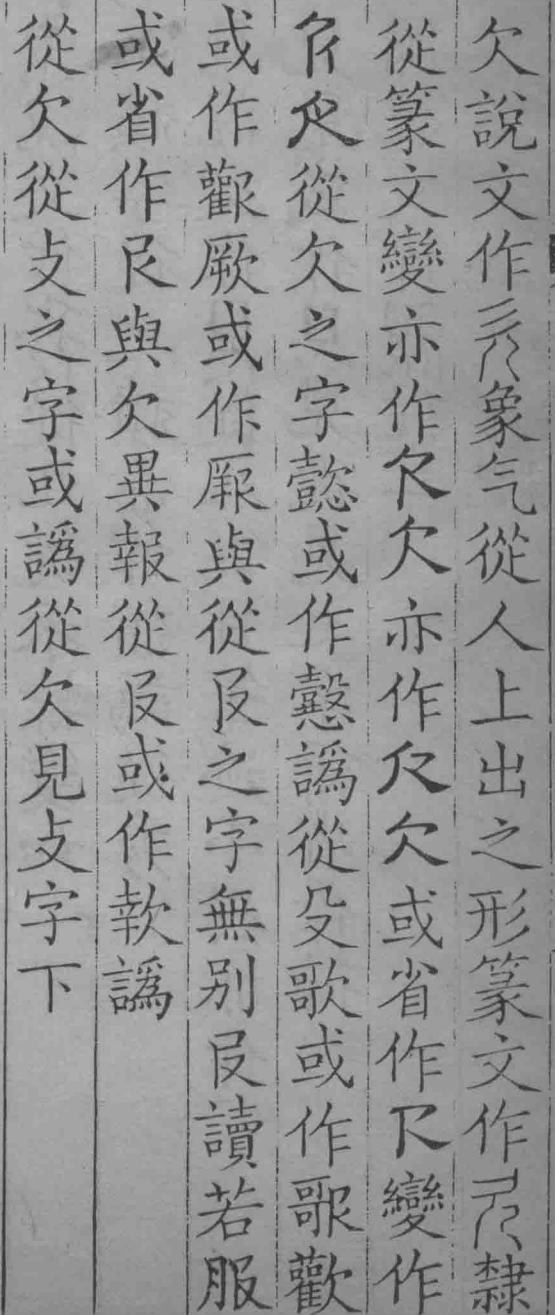 欠說文作象气從人上出之形篆文作隸
從篆文變亦作欠亦作欠或省作變作
從欠之字懿或作譌從殳歌或作歡
或作厥或作與從𠬝之字無别𠬝讀若服
或省作與欠異報從𠬝或作譌
從欠從攴之字或譌從欠見攴字下